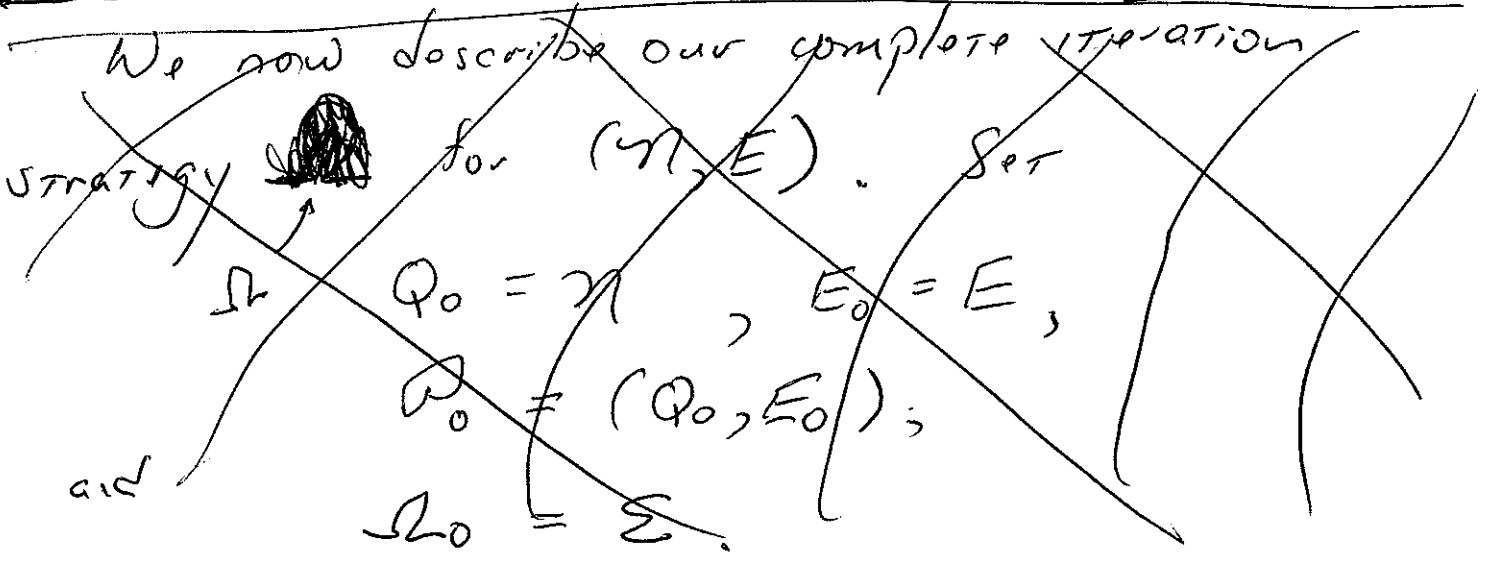 We now describe our complete iteration
strategy Ω for (𝓜, E). Set
Q₀ = 𝓜, E₀ = E,
𝒫₀ = (Q₀, E₀),
and
Ω₀ = Σ.